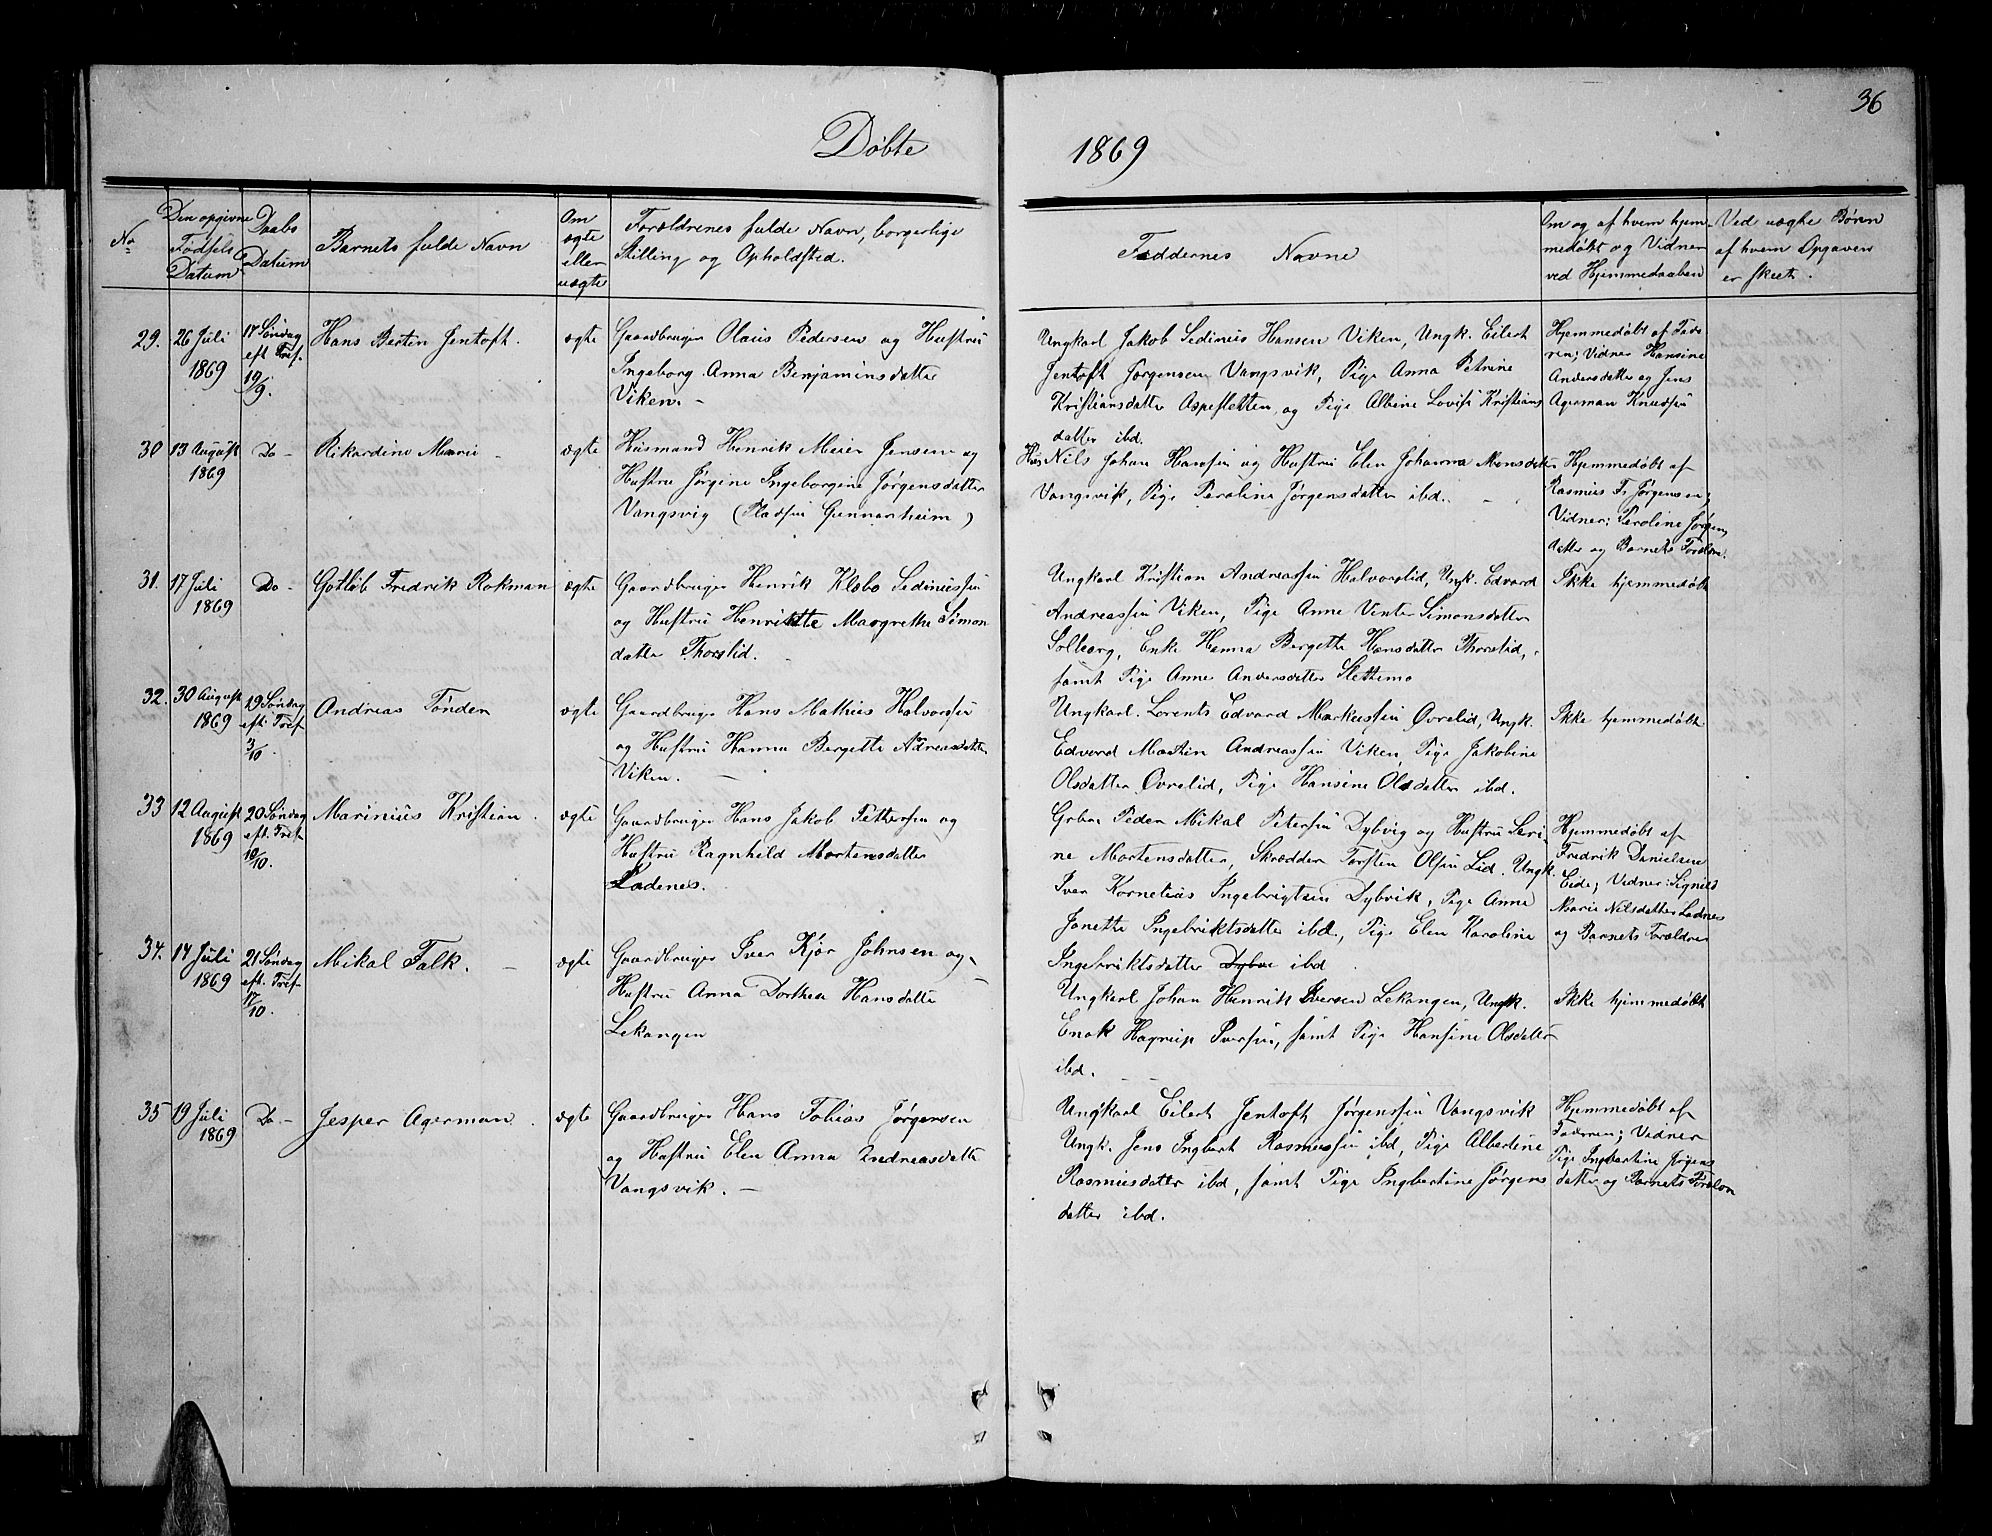 36
Døbte 1869
No
Den opgivne Fødsels Datum
Daabs Datum
Barnets fulde Navn
Om ægte eller uægte
Forældrenes fulde Navn, borgerlige Stilling og Opholdsted.
Faddernes Navne
Om og af hvem hjemmedøbt og Vidner ved Hjemmedaaben
Ved uægte Børn af hvem Opgaven er skeet.
29. 26 Juli 1869
17 Søndag eft. Tref. 19/9.
Hans Bertin Jentoft.
ægte
Gaardbruger Olaus Pedersen og Hustru
Ingeborg Anna Benjaminsdatter
Viken. -
Ungkarl Jakob Sedinius Hansen Viken, Ungk. Eilert
Jentoft Jørgensen Vangsvik, Pige Anna Petrine
Kristiansdatter Aspesletten, og Pige Albine Lovise Kristians
datter ibd.
Hjemmedøbt af Fade-
ren; Vidner Hansine
Andersdatter og Jens
Agerman Knudsen
30 13 August 1869
Do -
Rikardine Marie -
ægte
Husmand Henrik Meier Jensen og
Hustru Jørgine Ingeborgine Jørgensdatter
Vangsvig (Pladsen Gunnarheim)
Hus Nils Johan Hansen og Hustru Elen Johanna Monsdatter
Vangsvik, Pige Peroline Jørgensdatter ibd. -
Hjemmedøbt af
Rasmus F. Jørgensen;
Vidner: Peroline Jørgens
datter og Barnets Forældre.
31. 17 Juli 1869
Do -
Gotlib Fredrik Rokman
ægte
Gaardbruger Henrik Klebo Sediniussen
og Hustru Henriktte Margrethe Simon
datter Thorslid. -
Ungkarl Kristian Andreassen Halvorslid, Ungk. Edvard
Andreassen Viken, Pige Anne Venter Simonsdatter
Solberg, Enke Hanna Bergette Hansdatter Thorslid,
samt Pige Anne Andersdatter Slettemo
Ikke hjemmedøbt
32. 30 August 1869
19 Søndag eft. Tref 3/10.
Andreas Tønder
ægte
Gaardbruger Hans Mathius Halvorsen
og Hustru Hanna Bergette Andreasdatter
Viken. -
Ungkarl. Lorents Edvard Markussen Øvrelid, Ungk.
Edvard Martin Andreassen Viken, Pige Jakobine
Olsdatter Øvrelid, Pige Hansine Olsdatter ibd.
Ikke hjemmedøbt
33 12 August 1869
20 Søndag eft. Tref. 10/10.
Marinius Kristian.
ægte
Gaardbruger Hans Jakob Pettersen og
Hustru Ragnhild Mortensdatter
Ladenes.
Grbr. Peder Mikal Petersen Dybvig og Hustru Seri-
ne Mortensdatter, Skrædder Torsten Olsen Lid. Ungk.
Iver Kornelius Ingebrigtsen Dybvik, Pige Anne
Jonette Ingebriktsdatter ibd, Pige Elen Karoline
Ingebriktsdatter Dybve ibd
Hjemmedøbt af
Fredrik Danielsen
Eide; Vidner: Signild
Marie Nilsdatter Ladnes
og Barnets Forældre
34. 14 Juli 1869
21 Søndag eft. Tref- 17/10.
Mikal Falk. -
ægte
Gaardbruger Iver Kjør Johnsen og
Hustru Anna Dorthea Hansdatter
Lekangen
Ungkarl Johan Henrik Iversen Lekangen, Ungk.
Enok Hagrup Iversen, samt Pige Hansine Olsdatter
ibd. -
Ikke hjemmedøbt
35 19 Juli 1869
Do -
Jesper Agerman.
ægte
Gaardbruger Hans Tobias Jørgensen
og Hustru Elen Anna Andreasdatter
Vangsvik. -
Ungkarl Eilert Jentoft Jørgenssen Vangsvik
Ungk. Jens Ingbert Rasmussen ibd, Pige Albertine
Rasmusdatter ibd, samt Pige Ingbertine Jørgens
datter ibd.
Hjemmedøbt af
Faderen; Vidner
Pige Ingbertine Jørgens
datter og Barnets Forældre